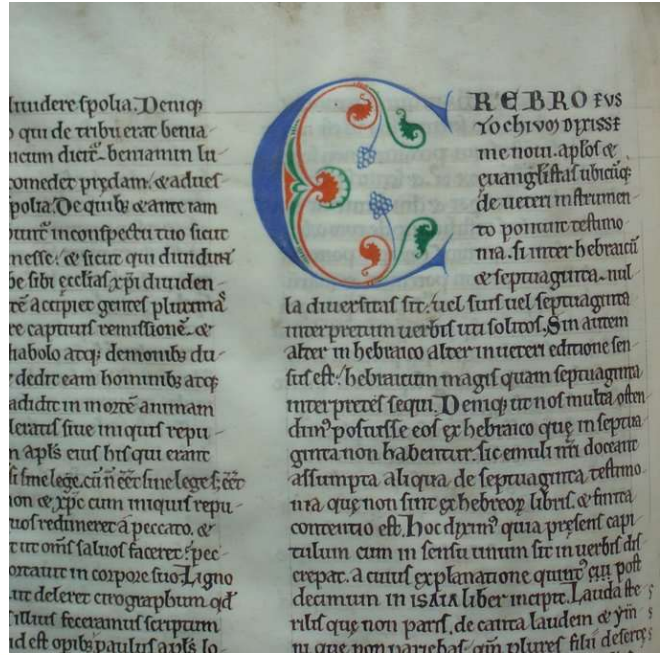 diuidere spolia. Deniq;
qui de tribu erat benia-
dicit. beniamin lu-
comedet prędam. & ad
spolia. De quib; & ante iam
in conspectu tuo sicut
& sicut qui diuidunt
sibi ęcclias xpi diuiden-
accipiet gentes
captiuis remissionē. &
diabolo atq; demonib; du-
dedit eam hominib; atq;
tradidit in mortē animam
siue iniquis repu-
apls eius his qui erant
sine lege. cū n eēt sine lege
non & xpc cum iniquis repu-
redimeret a peccato. &
ut om̅s saluos faceret. pec-
in corpore suo. Ligno
ut deleret cirographum qd
illius feceramus scriptum
id est opib; paulus apls lo-
CREBRO EUS
TOCHIUM DIXISSE
me noui. aplos &
euanglistas ubicūq;
de ueteri instrumen-
to ponunt testimo
nia. si inter hebraicū
& septuaginta. nul-
la diuersitas sit. uel suis uel septuaginta
interpretum uerbis uti solitos. Sin autem
aliter in hebraico aliter in ueteri editione sen-
sus est. hebraicum magis quam septuaginta
interpretes sequi. Deniq; ut nos multa osten-
dim' posuisse eos ex hebraico quę in septua-
ginta non habentur. sic emuli nri doceant
assumpta aliqua de septuaginta testimo-
nia quę non sint ex hebreoꝝ libris. & finita
contentio est. Hoc dixim' quia pręsens capi-
tulum cum in sensu unum sit in uerbis dis-
crepat. a cuius explanatione post
decimum in ISAIA liber incipit. Lauda ste-
rilis que non paris. decanta laudem &
que non pariebas. qm̅ plures filii desertę